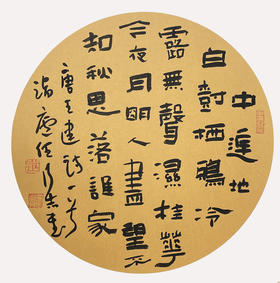 中庭地
白樹栖鴉冷
露無聲濕桂華
今夜月明人盡望不
知秋思落誰家
唐王建詩一首